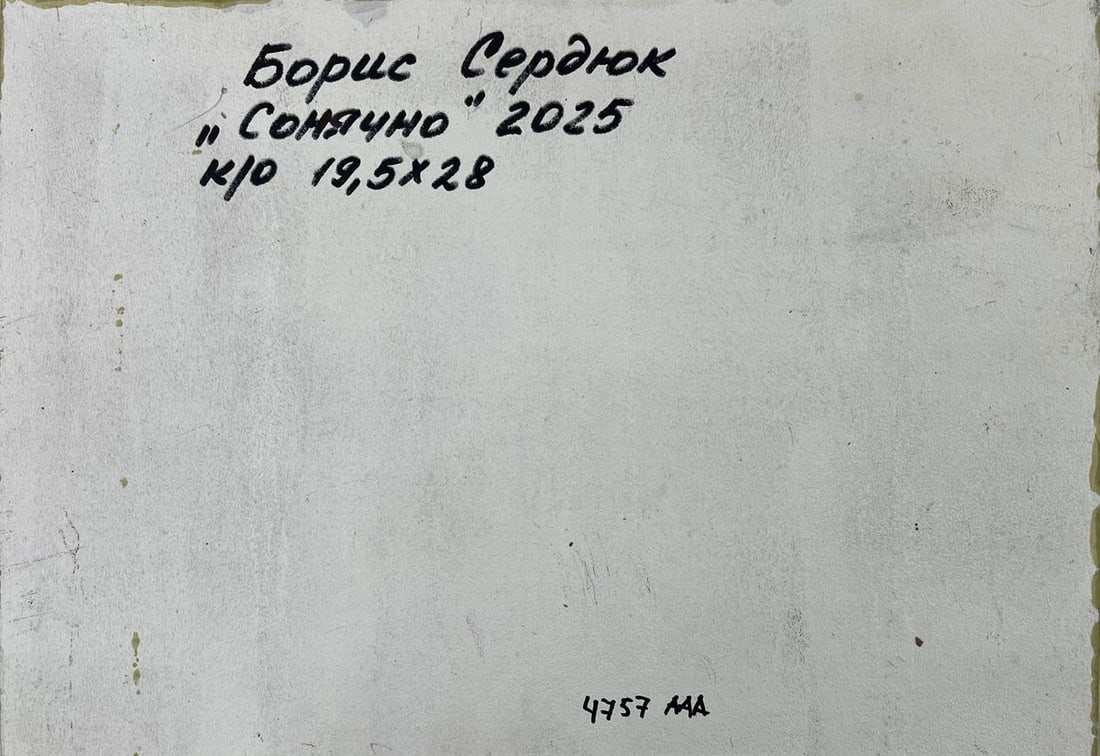 Борис Сердюк
„Сонячно" 2025
к/о 19,5х28
4757 ААА